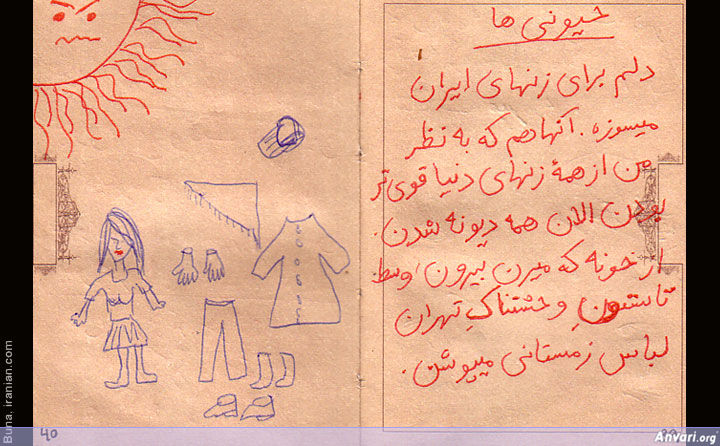 حیوونی ها
دلم برای زنهای ایران
میسوزه. آنهاهم که به نظر
من از همهٔ زنهای دنیا قوی تر
بودن الان همه دیونه شدن.
از خونه که میرن بیرون، وسط
تابستونِ وحشتناکِ تهران
لباس زمستانی میپوشن.
40
Buna. iranian.com
Anvari.org